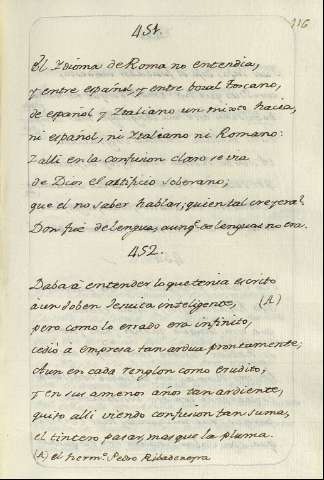 116
451.
El Ydioma de Roma no entendia,
y entre español, y entre bozal Toscano,
de español y Ytaliano un mixto hacia,
ni español, ni Ytaliano ni Romano:
Y alli en la confusion claro se via
de Dios el artificio soberano;
que el no saber hablar, quien tal creyera?
Don fue de lengua, aunq.e de lenguas no era.
452.
Dabaà entender lo que tenia escrito
à un Joben Jesuita inteligente, (A)
pero como lo errado era infinito,
cediò à empresa tan ardua prontamente;
Aun en cada renglon como erudito,
y en sus amenos años tan ardiente,
quiso alli viendo confusion tan suma,
el tintero pasar, mas que la pluma.
(A) el herm.o Pedro Ribadeneyra